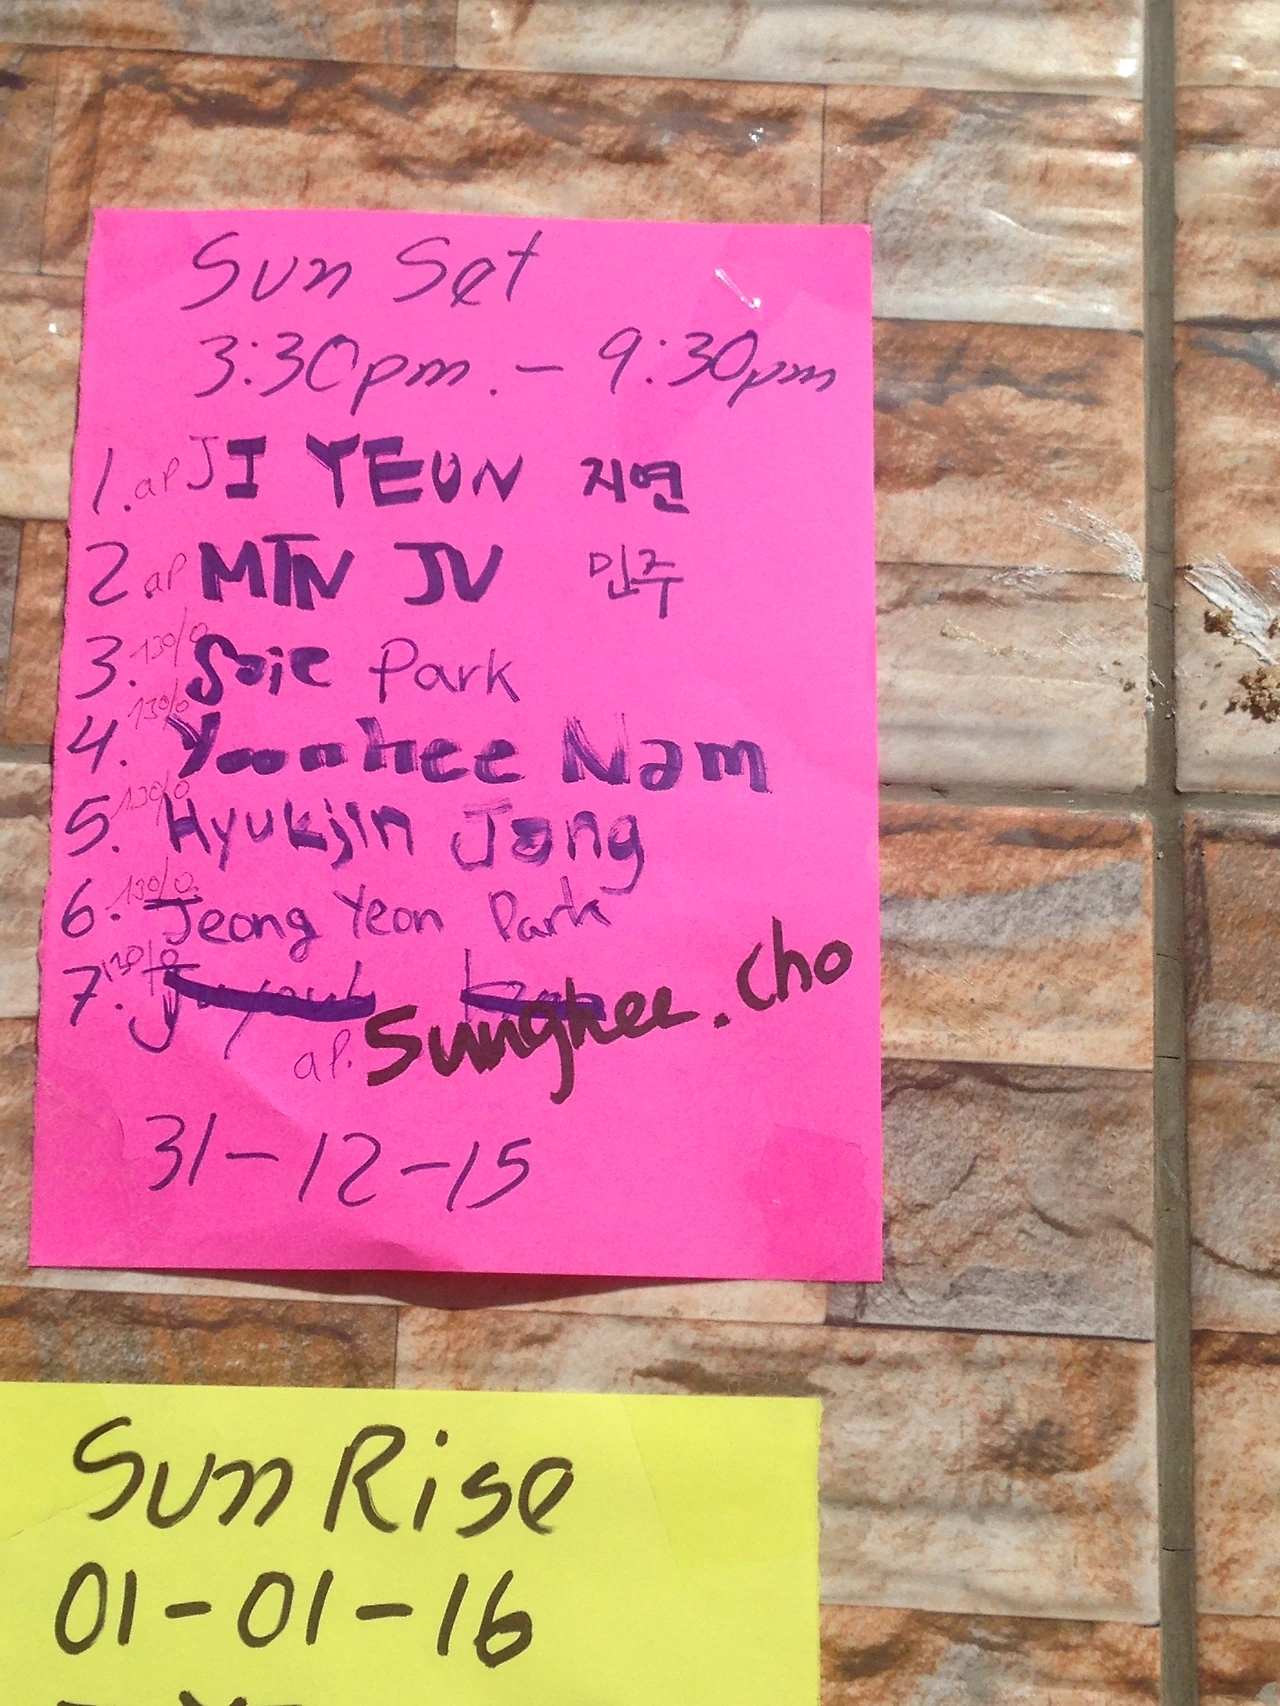 Sun Set
3:30pm. - 9:30pm
1. ap JI YEUN 지연
2 ap MIN JU 민주
3. 130/0 Soie Park
4. 130/0 Yoonhee Nam
5. 130/0 Hyukjin Jang
6. 130/0 Jeong Yeon Park
7. 130/0
ap. Sunghee. Cho
31-12-15
Sun Rise
01-01-16